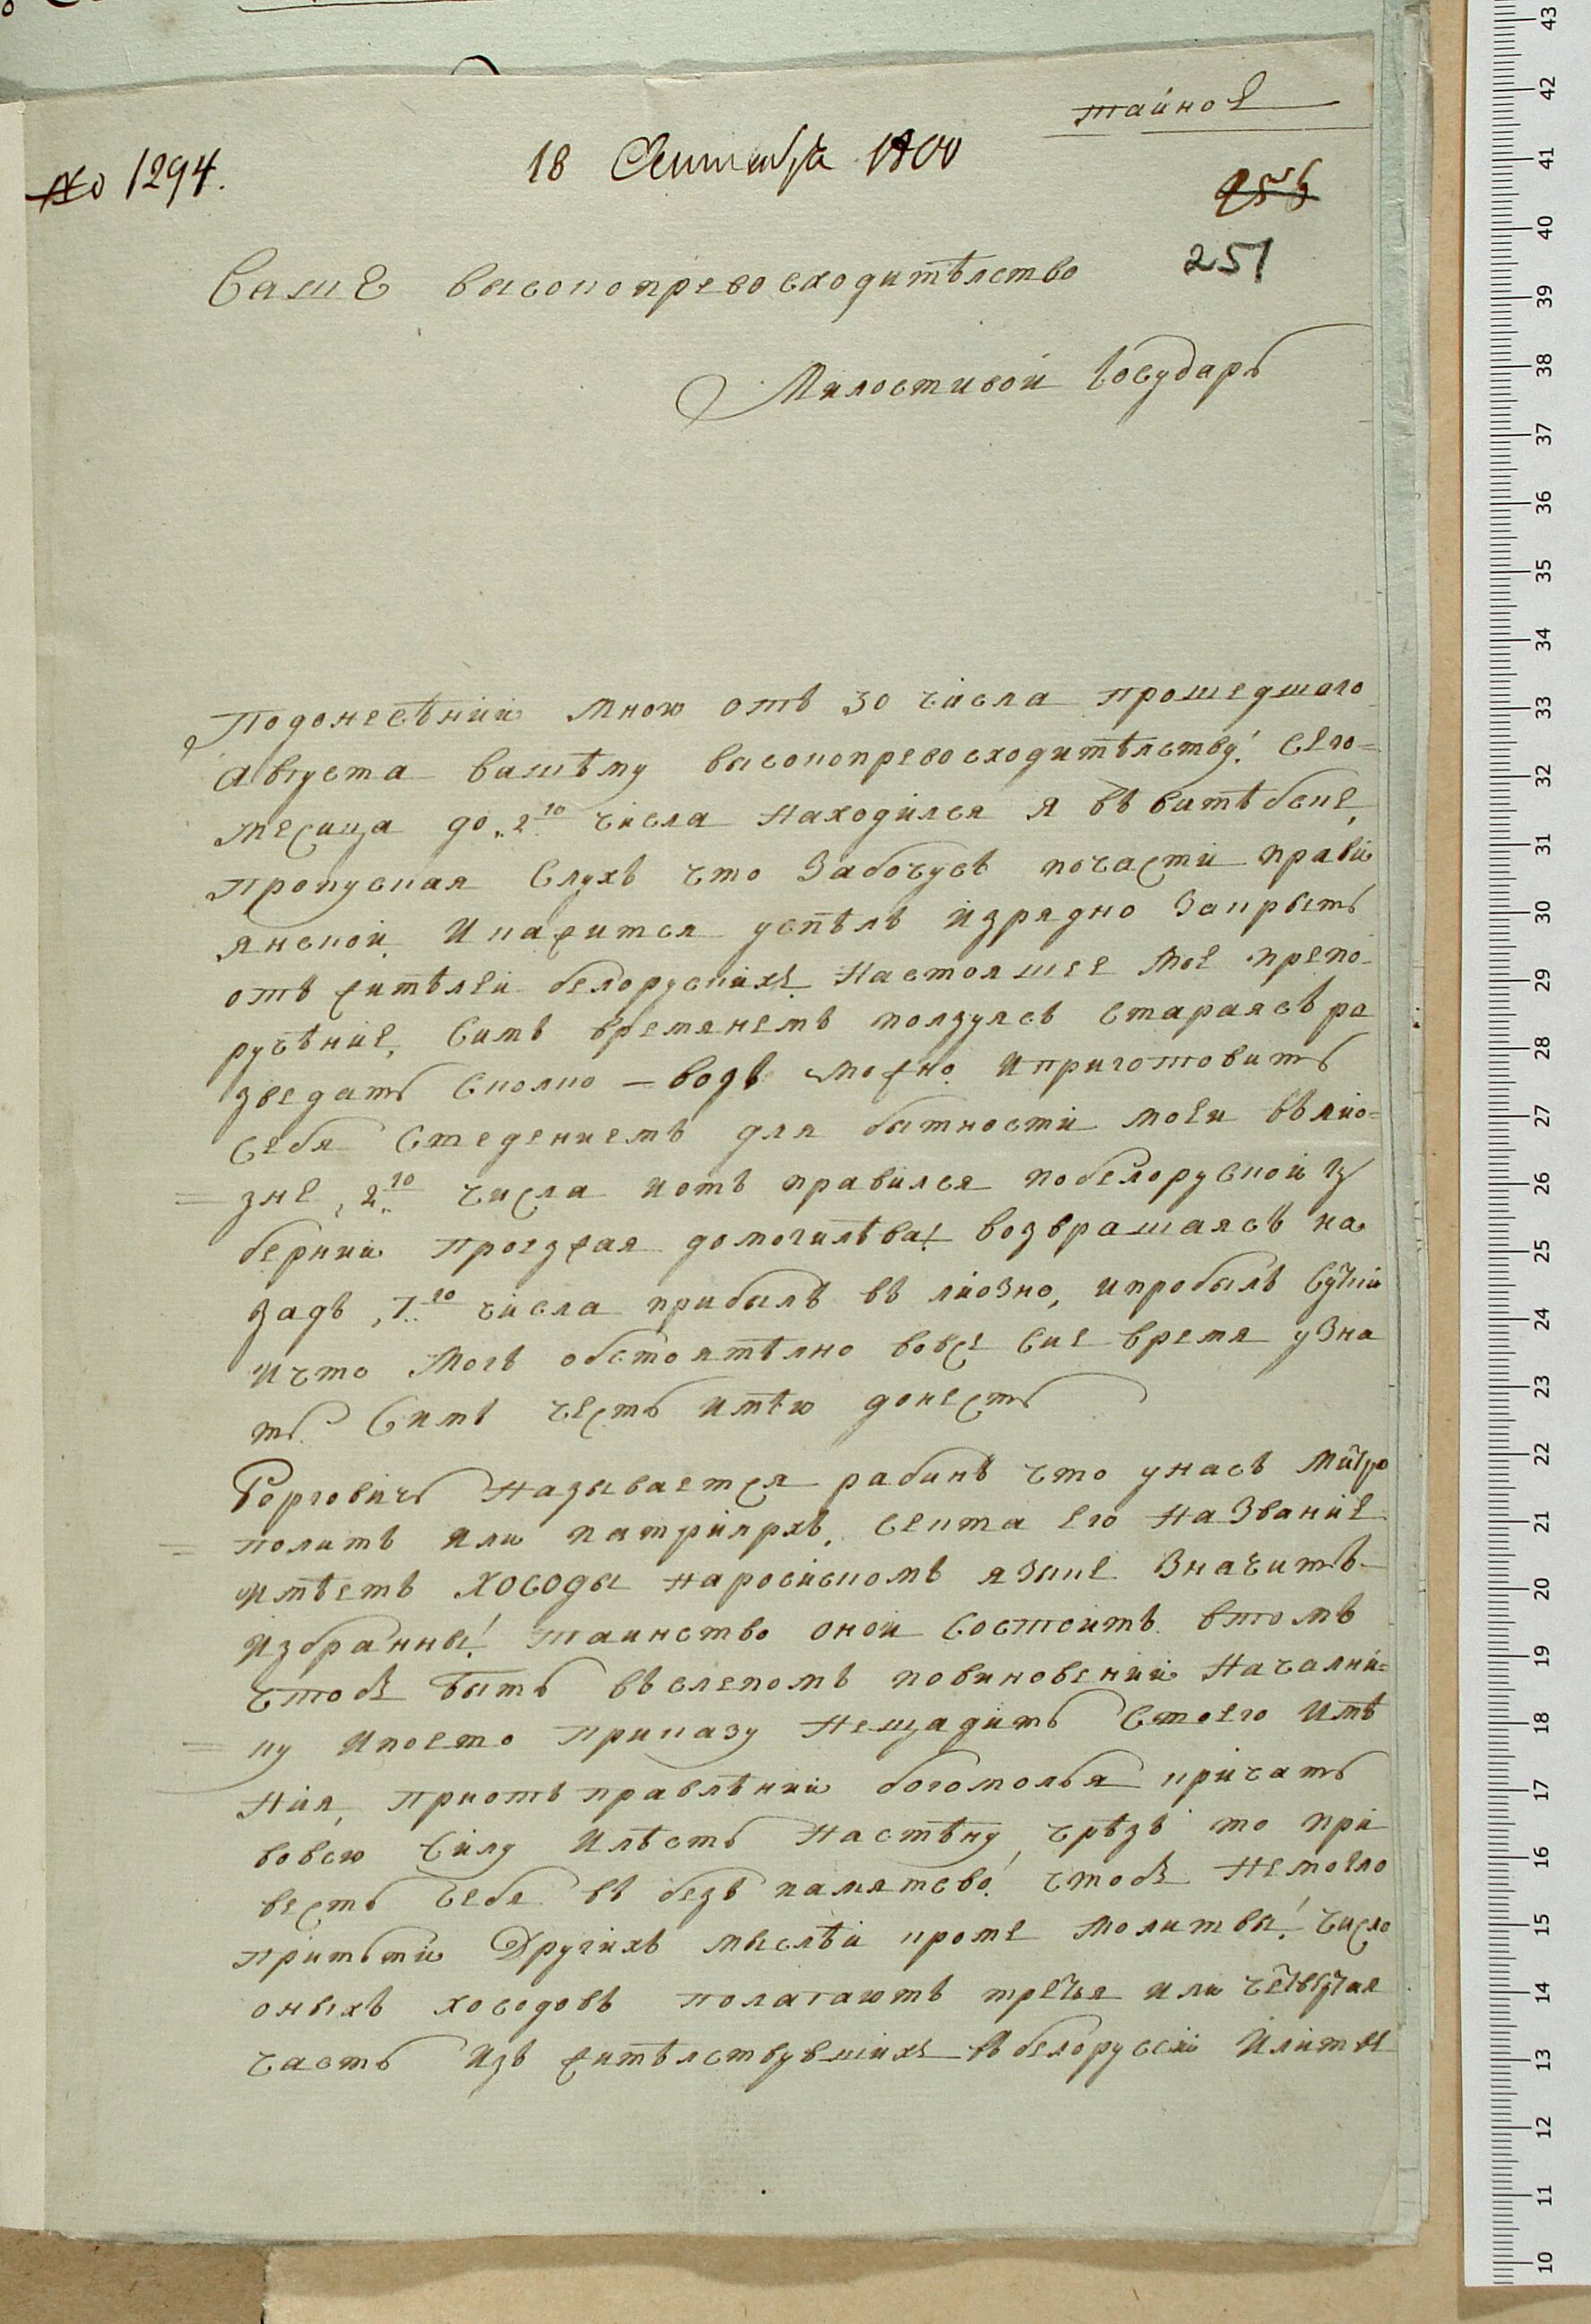 тайное
№ 1294.
18 Сентября 1800
251
Ваше высокопревосходитѣлство
Милостивой Государь
Подонесѣнии мною отъ 30 числа прошедшаго
августа вашѣму высокопревосходитѣлству! сего=
месица до „2го числа находился я въ витѣбске,
пропуская слухъ что забочусъ почасти прови
янской. Икажится успѣлъ изрядно закрыть
отъ житѣлей белоруских настоящее мое препо-
ручѣние, симъ времянемъ ползуясъ стараясъ ра
зведать сколко – водъ можно. иприготовить
себя стедениемъ для бытности моей въ лио=
зне, 2го числа и отъ правился побелоруской гу
бернии проезжая домогилѣва! возвращаясъ на
задъ, 7го числа прибылъ въ лиозно, ипробылъ сутки
ичто могъ обстоятѣлно вовсе сие время узна
ть симъ честь имѣю донесть
Борговичь называется рабинъ что унасъ митро
полить или патриярхъ. секта его название
имѣетъ хосоды наросискомъ языке значитъ
избранны! таинство оной состоитъ втомъ
чтобъ быть въ слепомъ повиновении начални=
ку ипоево приказу нещадить своего имѣ
ния, приотъ правлѣнии богомолья кричать
вовсю силу илѣсть настѣну, чрѣзъ то при
весть себе въ безъ памятсво! чтобъ немогло
притьти другихъ мыслѣй кроме молитвы! число
оныхъ хосодовъ полагаютъ третья или четвертая
часть изъ житѣлствувших вбелоруссии и литвы